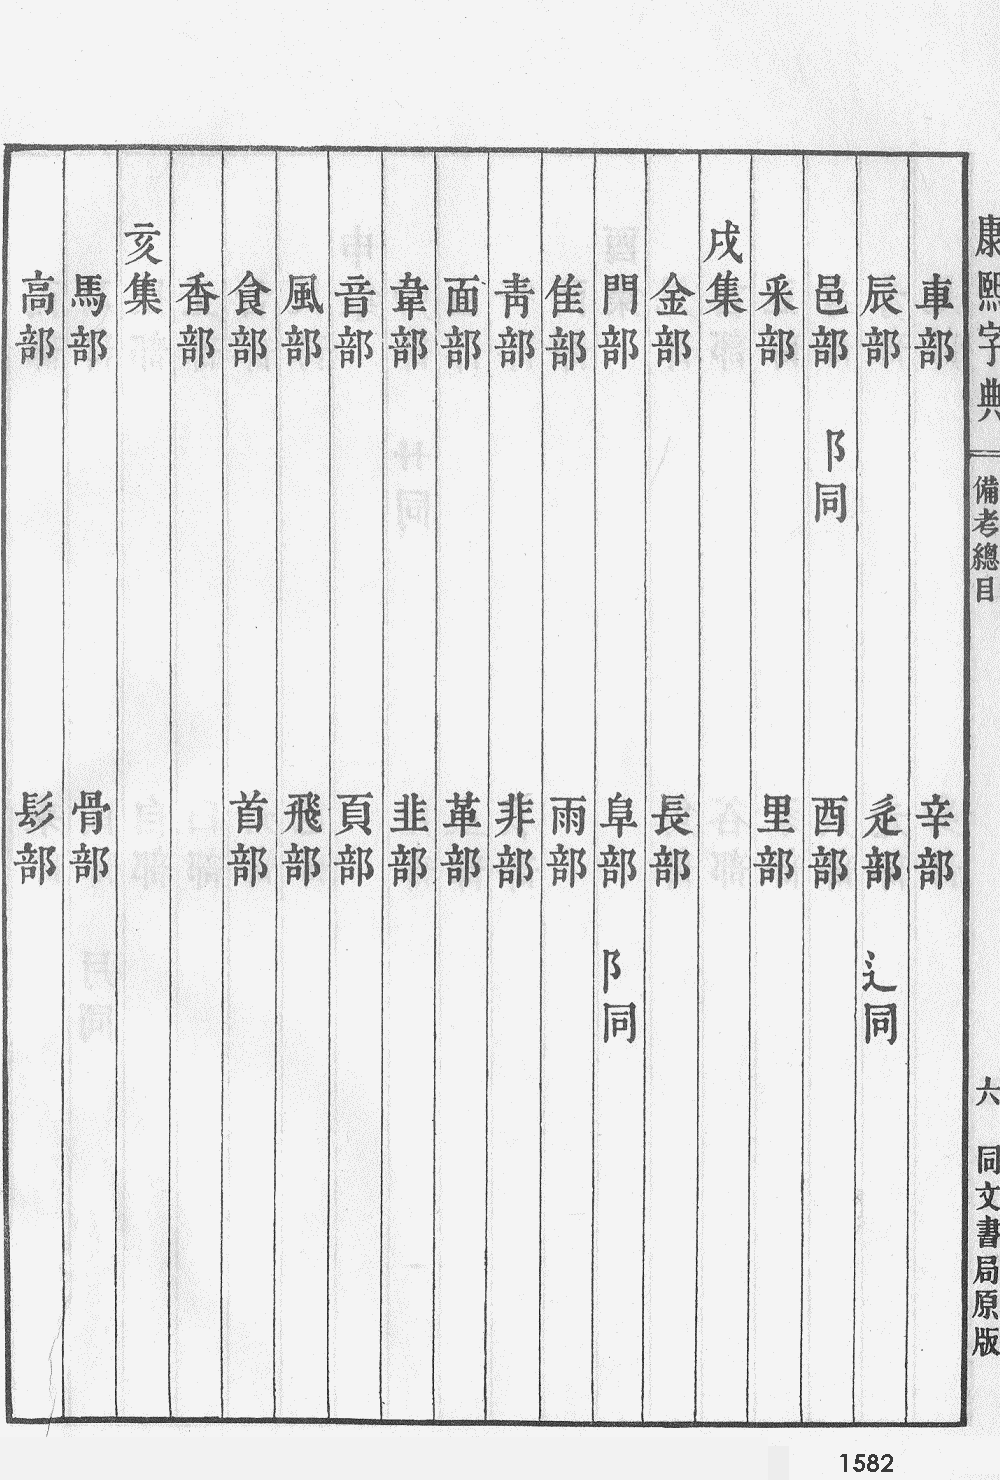 康熙字典 備考總目 六 同文書局原版
車部 辛部
辰部 辵部 辶同
邑部 阝同 酉部
釆部 里部
戌集
金部 長部
門部 阜部 阝同
隹部 雨部
靑部 非部
面部 革部
韋部 韭部
音部 頁部
風部 飛部
食部 首部
香部
亥集
馬部 骨部
高部 髟部
1582